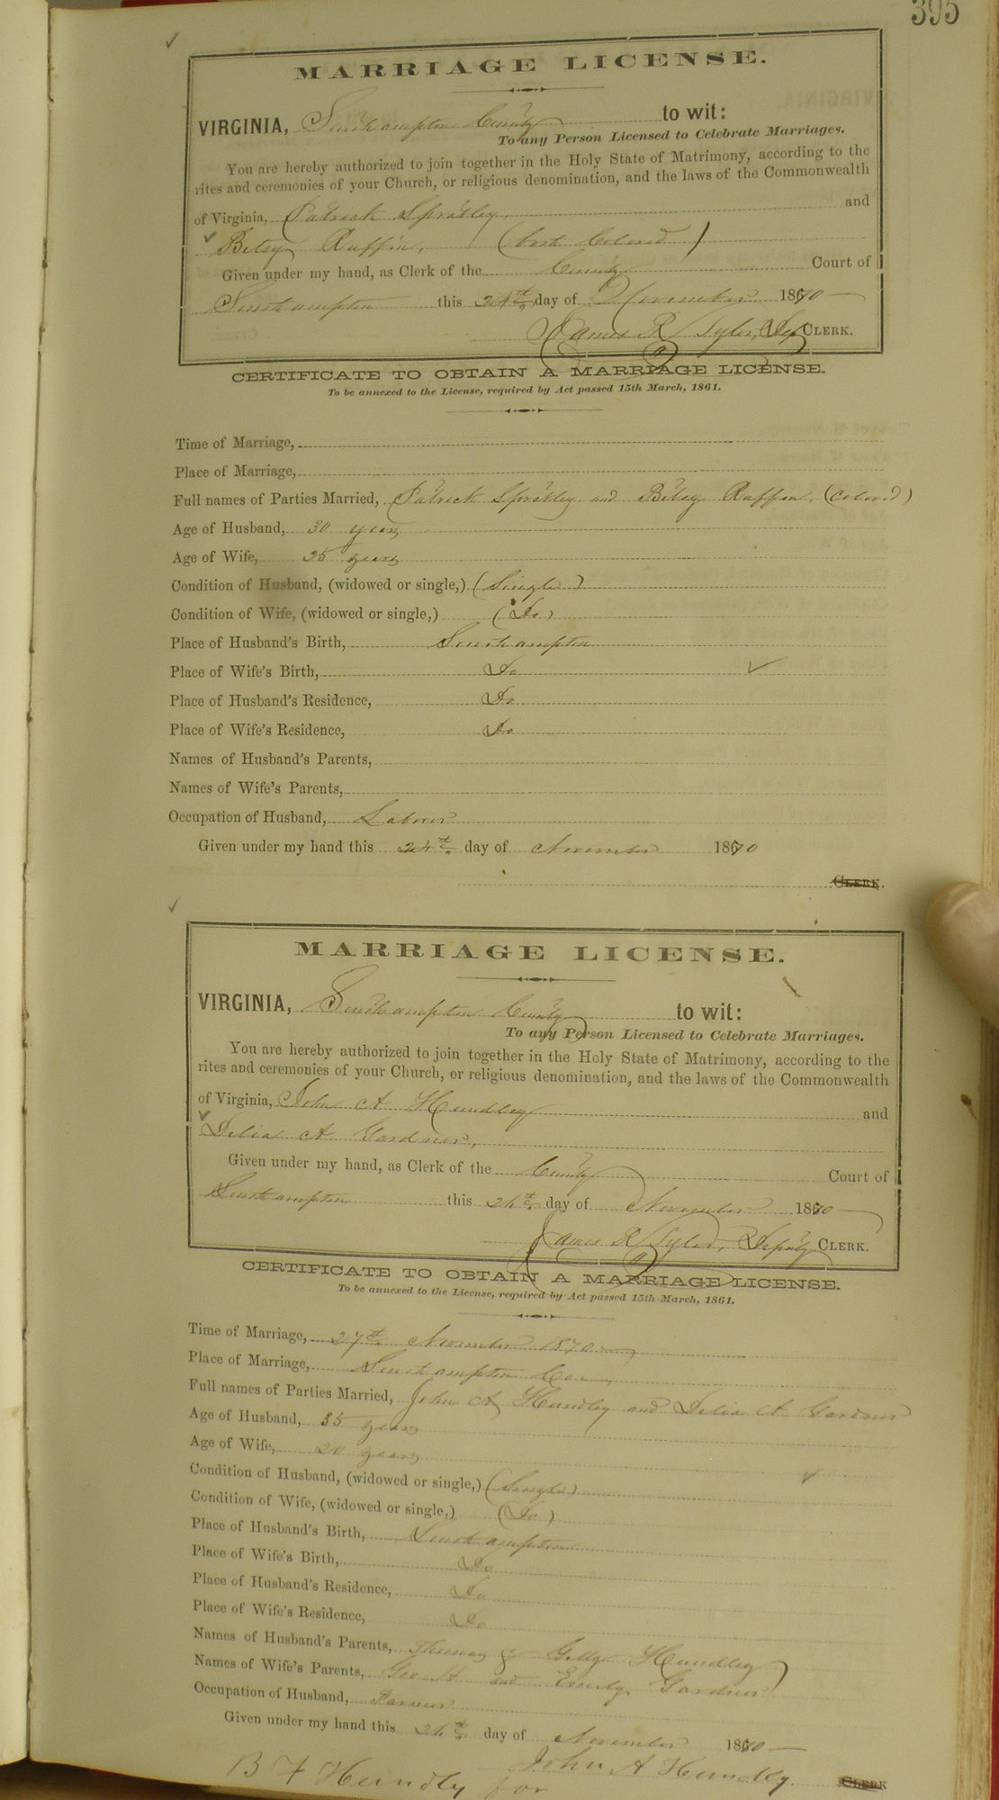 395
MARRIAGE LICENSE.
VIRGINIA, Southampton County to wit:
To any Person Licensed to Celebrate Marriages.
You are hereby authorized to join together in the Holy State of Matrimony, according to the
rites and ceremonies of your Church, or religious denomination, and the laws of the Commonwealth
of Virginia, Patrick Spratley and
Betsey Ruffin, (both Colored)
Given under my hand, as Clerk of the County Court of
Southampton this 24th day of November 1870
James R Tyler, Dep CLERK.
CERTIFICATE TO OBTAIN A MARRIAGE LICENSE.
To be annexed to the License, required by Act passed 15th March, 1861.
Time of Marriage,
Place of Marriage,
Full names of Parties Married, Patrick Spratley and Betsey Ruffin (Colored)
Age of Husband, 30 years
Age of Wife, 25 years
Condition of Husband, (widowed or single,) (Single)
Condition of Wife, (widowed or single,) (Do)
Place of Husband's Birth, Southampton
Place of Wife's Birth, Do
Place of Husband's Residence, Do
Place of Wife's Residence, Do
Names of Husband's Parents,
Names of Wife's Parents,
Occupation of Husband, Laborer
Given under my hand this 24th day of November 1870
CLERK.
MARRIAGE LICENSE.
VIRGINIA, Southampton County to wit:
To any Person Licensed to Celebrate Marriages.
You are hereby authorized to join together in the Holy State of Matrimony, according to the
rites and ceremonies of your Church, or religious denomination, and the laws of the Commonwealth
of Virginia, John A Hundley and
Delia A Gardner,
Given under my hand, as Clerk of the County Court of
Southampton this 24th day of November 1870
James R Tyler, Deputy CLERK.
CERTIFICATE TO OBTAIN A MARRIAGE LICENSE.
To be annexed to the License, required by Act passed 15th March, 1861.
Time of Marriage, 27th November 1870
Place of Marriage, Southampton Co
Full names of Parties Married, John A Hundley and Delia A Gardner
Age of Husband, 35 years
Age of Wife, 20 years
Condition of Husband, (widowed or single,) (Single)
Condition of Wife, (widowed or single,) (Do)
Place of Husband's Birth, Southampton
Place of Wife's Birth, Do
Place of Husband's Residence, Do
Place of Wife's Residence, Do
Names of Husband's Parents, Thomas & Hundley
Names of Wife's Parents, Geo H and Emily Gardner
Occupation of Husband, Farmer
Given under my hand this 24th day of November 1870
B F Hundley for John A Hundley. CLERK